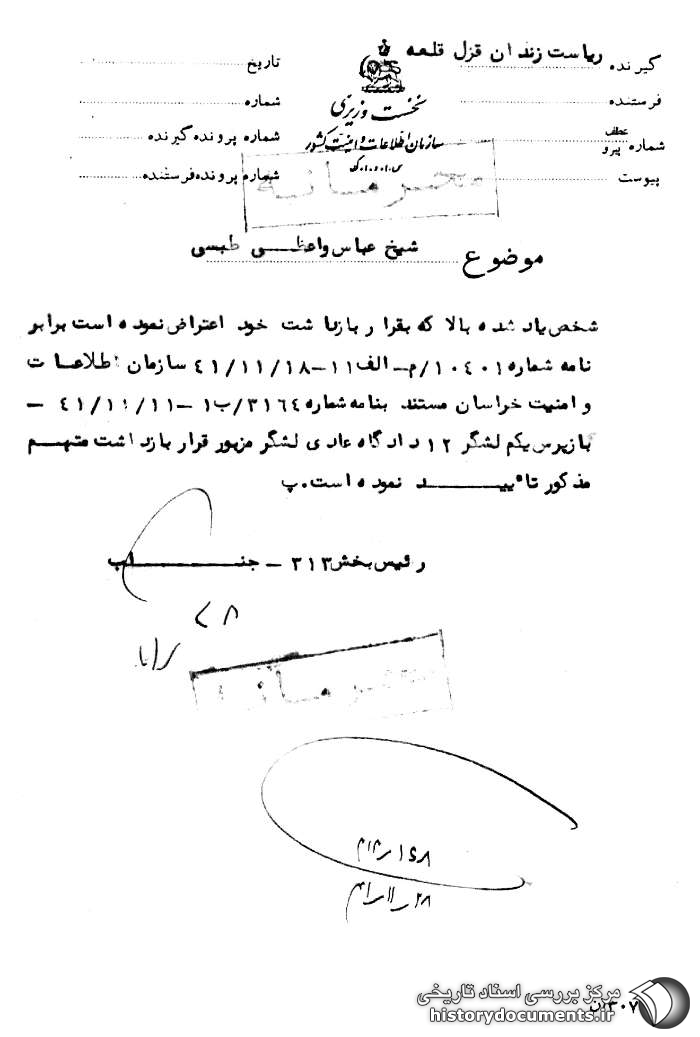 گیرنده ریاست زندان قزل قلعه
فرستنده
عطف
شماره پیرو
پیوست
نخست وزیری
سازمان اطلاعات و امنیت کشور
س.ا.و.ا.ک
تاریخ
شماره
شماره پرونده گیرنده
شماره پرونده فرستنده
محرمانه
موضوع شیخ عباس واعظی طبسی
شخص یاد شده بالا که بقرار بازداشت خود اعتراض نموده است برابر
نامه شماره ۱۰۴۰۱/م-الف۱۱-۴۱/۱۱/۱۸ سازمان اطلاعات
و امنیت خراسان مستند بنامه شماره ۳۱۶۴/ب۱-۴۱/۱۱/۱۱-
بازپرس یکم لشگر ۱۲ دادگاه عادی لشگر مزبور قرار بازداشت متهم
مذکور تائیید نموده است. پ
رئیس بخش ۳۱۳ - جناب
محرمانه
۳۰۷ن
مرکز بررسی اسناد تاریخی
historydocuments.ir